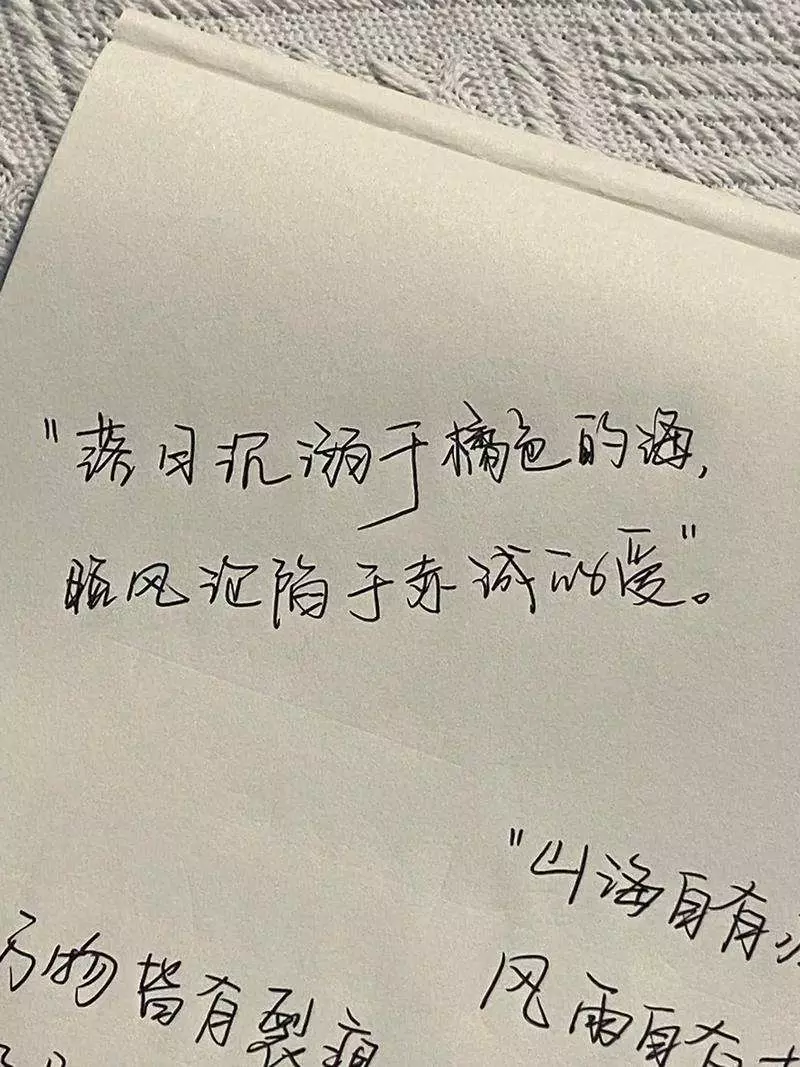 "落日沉溺于橘色的海,
晚风沦陷于赤诚的爱"。
"山海自有
风雨自有
万物皆有裂痕